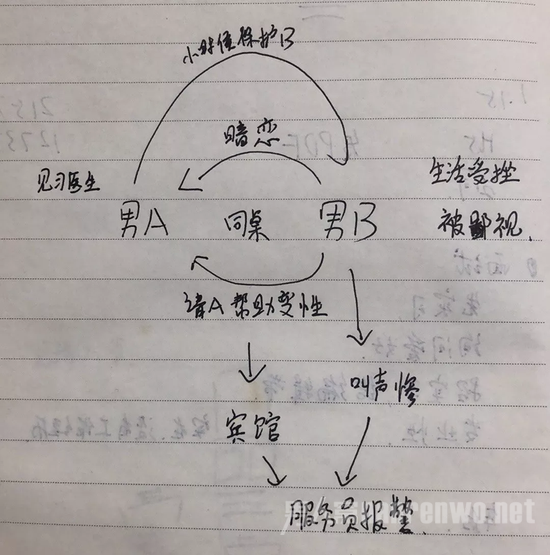 小时候保护B
暗恋
见习医生
男A 同桌 男B
生活受挫
被鄙视.
请A帮助变性
宾馆
叫声惨
服务员报警
renwo.net